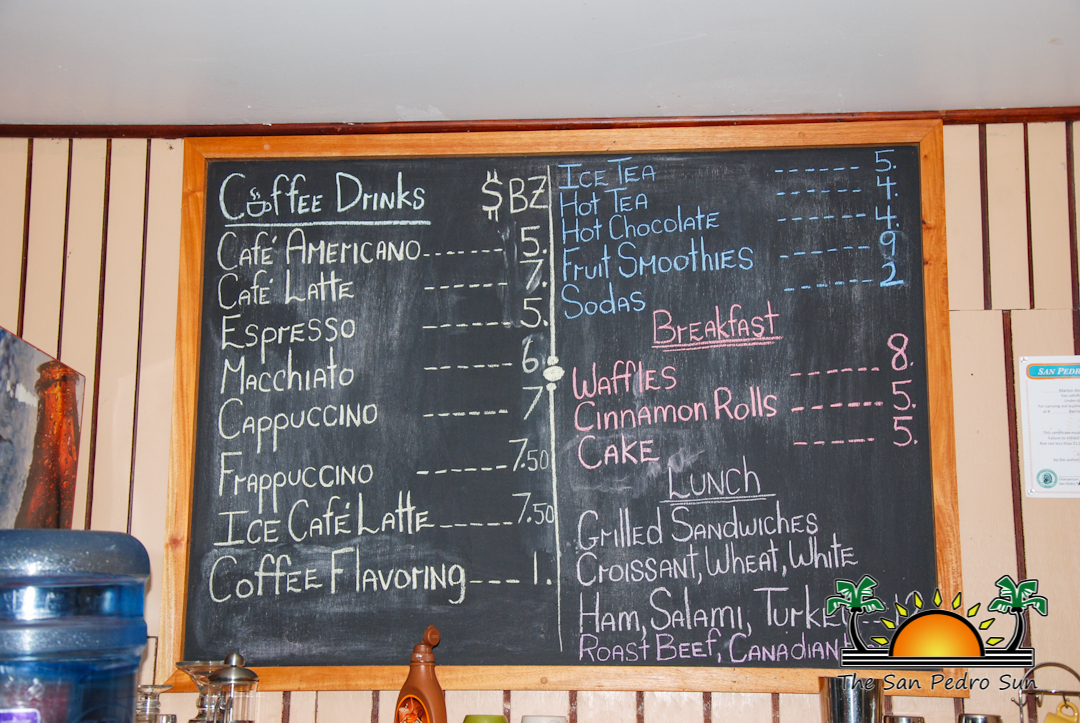 Coffee Drinks $BZ
Café Americano------- 5.
Café Latte ------ 7.
Espresso ------ 5.
Macchiato ------ 6
Cappuccino ------ 7
Frappuccino ------ 7.50
Ice Café Latte------ 7.50
Coffee Flavoring--- 1.
Ice Tea ------ 5.
Hot Tea ------ 4.
Hot Chocolate ------ 4.
Fruit Smoothies ------ 9
Sodas ------ 2
Breakfast
Waffles ------ 8.
Cinnamon Rolls ------ 5.
Cake ----- 5.
Lunch
Grilled Sandwiches
Croissant, Wheat, White
Ham, Salami,
Roast Beef, Canadian
San Pedro
The San Pedro Sun